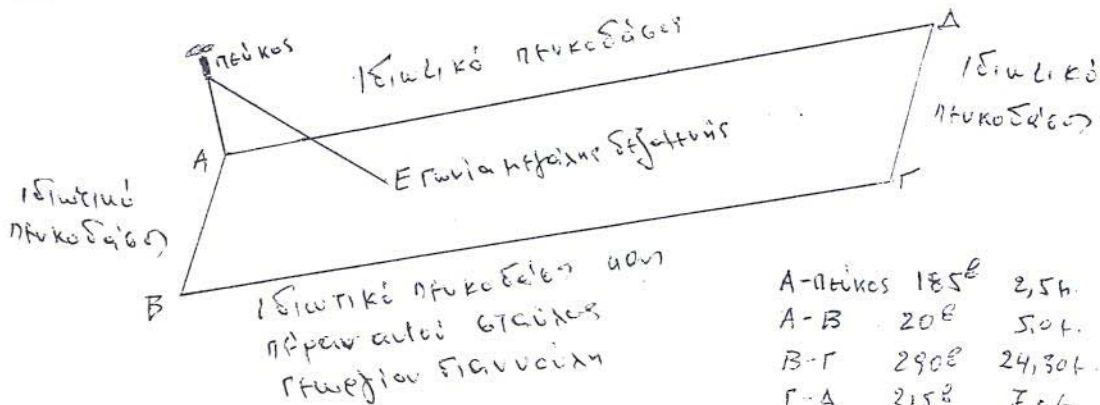 πεύκος
Ιδιωτικό πευκοδάσος
Δ
Ιδιωτικό
πευκοδάσος
Α
Ε Γωνία μεγάλης δεξαμενής
Ιδιωτικό
πευκοδάσος
Γ
Β
Ιδιωτικό πευκοδάσος
πέραν αυτού σταύλος
Γεωργίου
Α-πεύκος 185ᵍ 2,5μ.
Α-Β 20ᵍ 5,0μ.
Β-Γ 290ᵍ 24,30μ.
Γ-Δ 215ᵍ